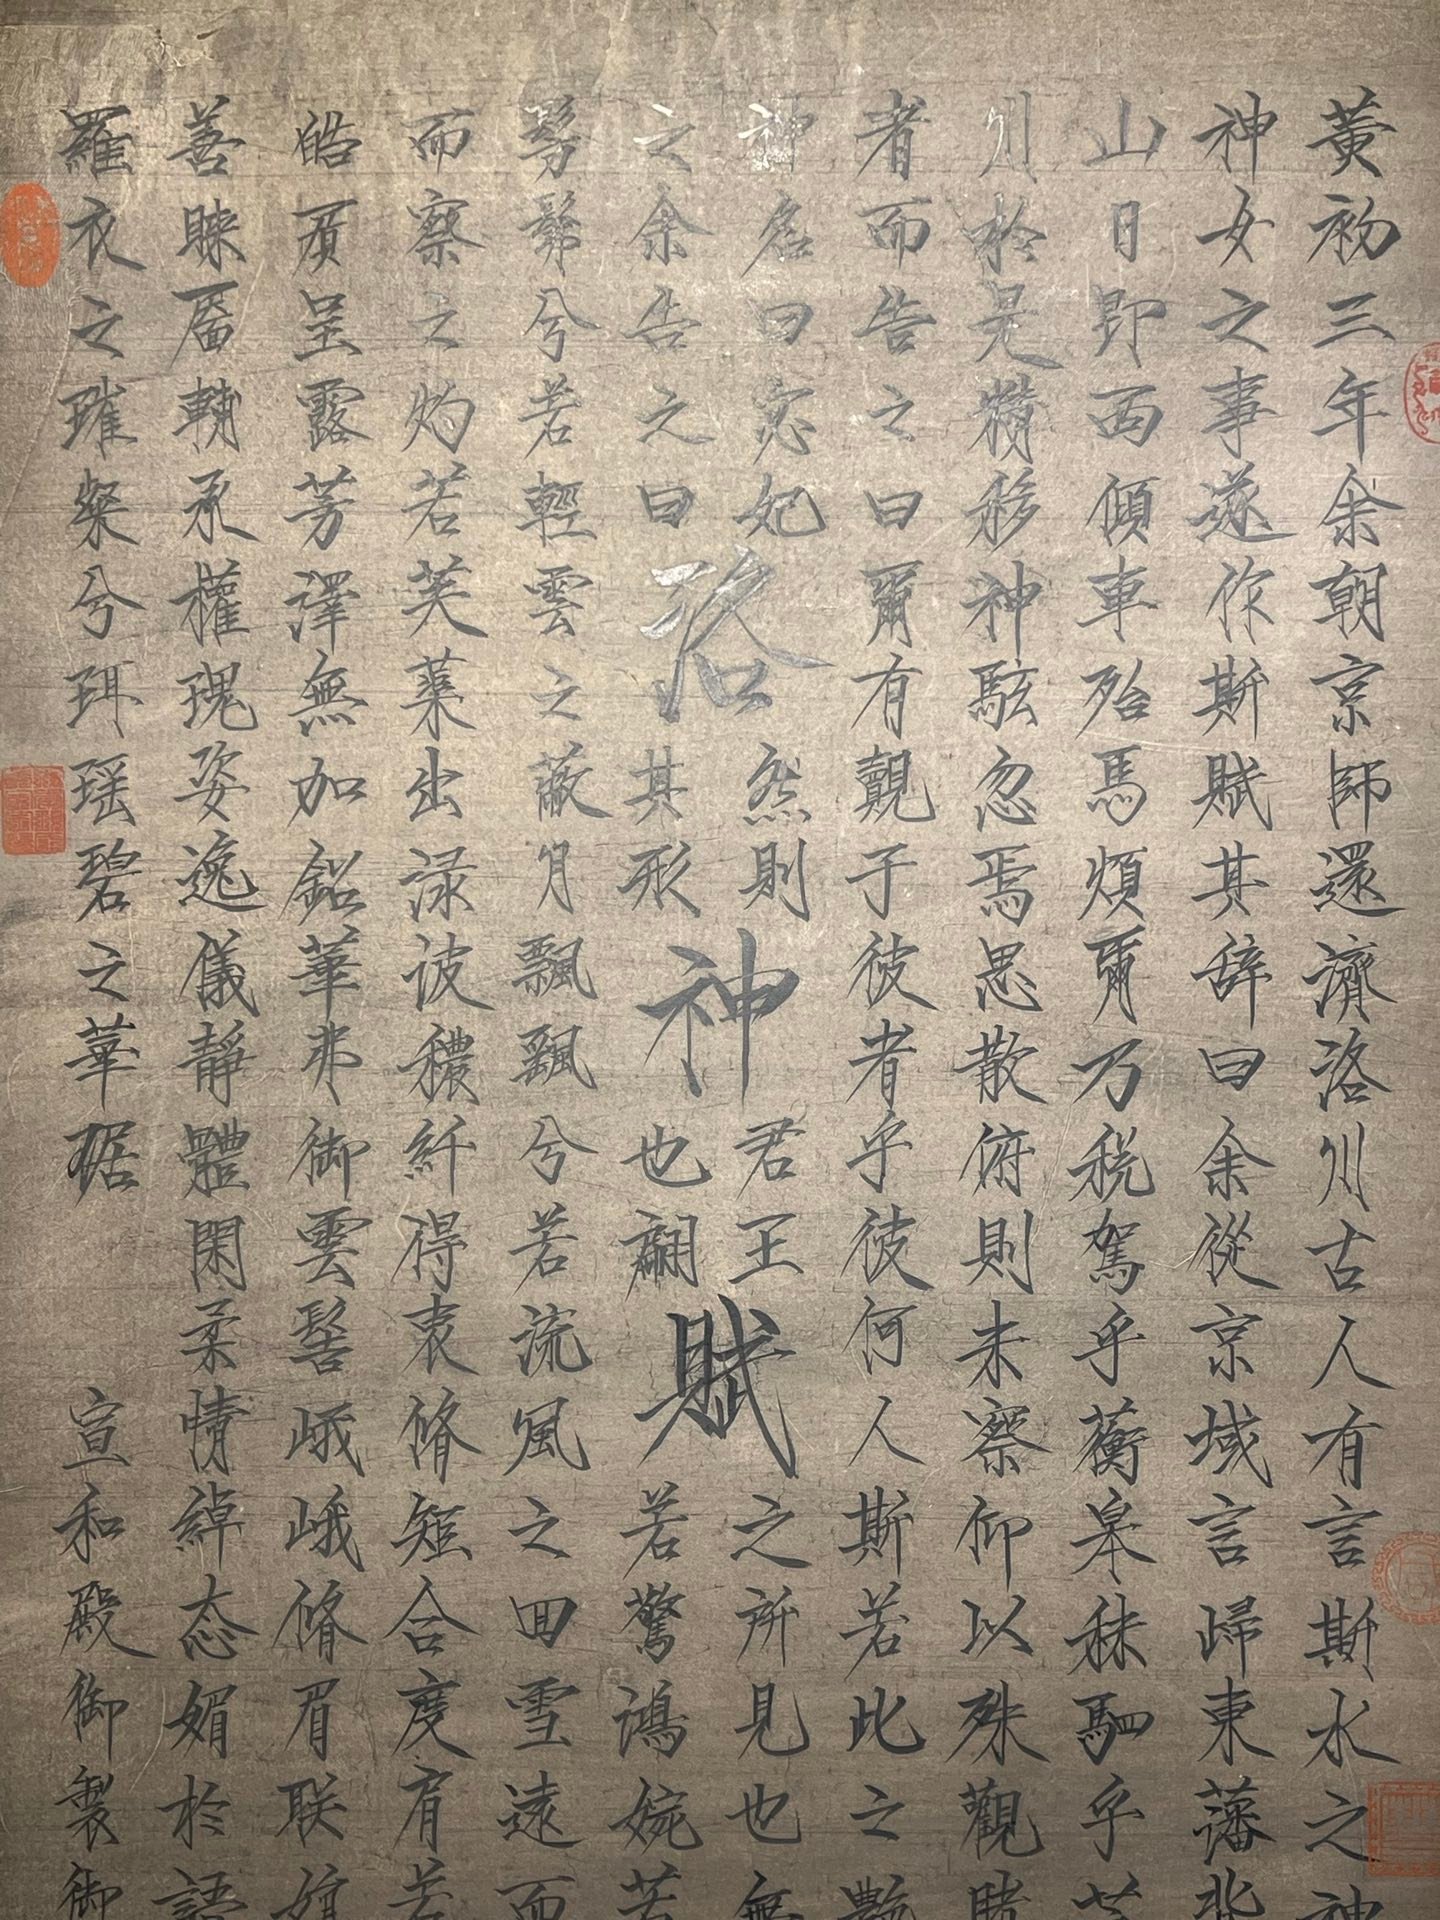 黃初三年余朝京師還濟洛川古人有言斯水之神
神女之事遂作斯賦其辞曰余從京域言歸東藩背
山日即西傾車殆馬煩爾乃税駕乎蘅皋秣駟乎芝
川於是精移神駭忽焉思散俯則未察仰以殊觀睹
者而告之曰爾有覿于彼者乎彼何人斯若此之艷
神名曰宓妃然則君王之所見也無
洛神賦
之余告之曰其形也翩若驚鴻婉若
髣髴兮若輕雲之蔽月飄飖兮若流風之回雪遠而
而察之灼若芙蕖出渌波穠纤得衷脩短合度肩若
皓質呈露芳澤無加鉛華弗御雲髻峨峨脩眉联娟
善睞靨輔承權瑰姿逸儀靜體閑柔情綽态媚於語
羅衣之璀粲兮珥瑶碧之華琚
宣和殿御製御